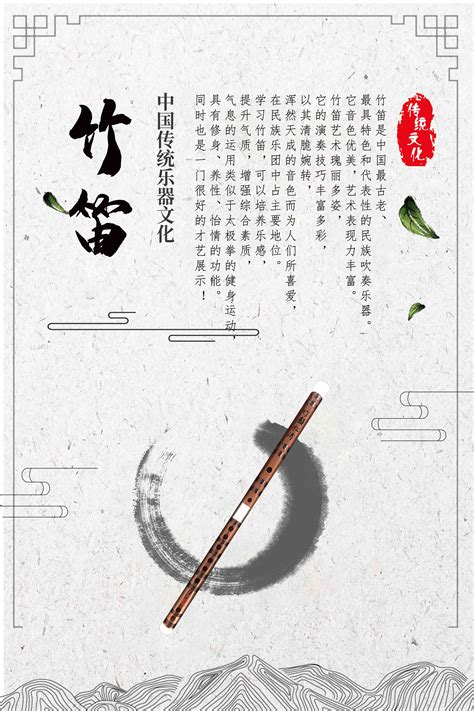 传统
文化
竹笛是中国最古老、
最具特色和代表性的民族吹奏乐器。
它音色优美，艺术表现力丰富。
竹笛艺术瑰丽多姿，
它的演奏技巧丰富多彩，
以其清脆婉转，
浑然天成的音色而为人们所喜爱，
在民族乐团中占主要地位。
学习竹笛，可以培养乐感，
提升气质，增强综合素质，
气息的运用类似于太极拳的健身运动，
具有修身、养性、怡情的功能。
同时也是一门很好的才艺展示！
中国传统乐器文化
竹笛